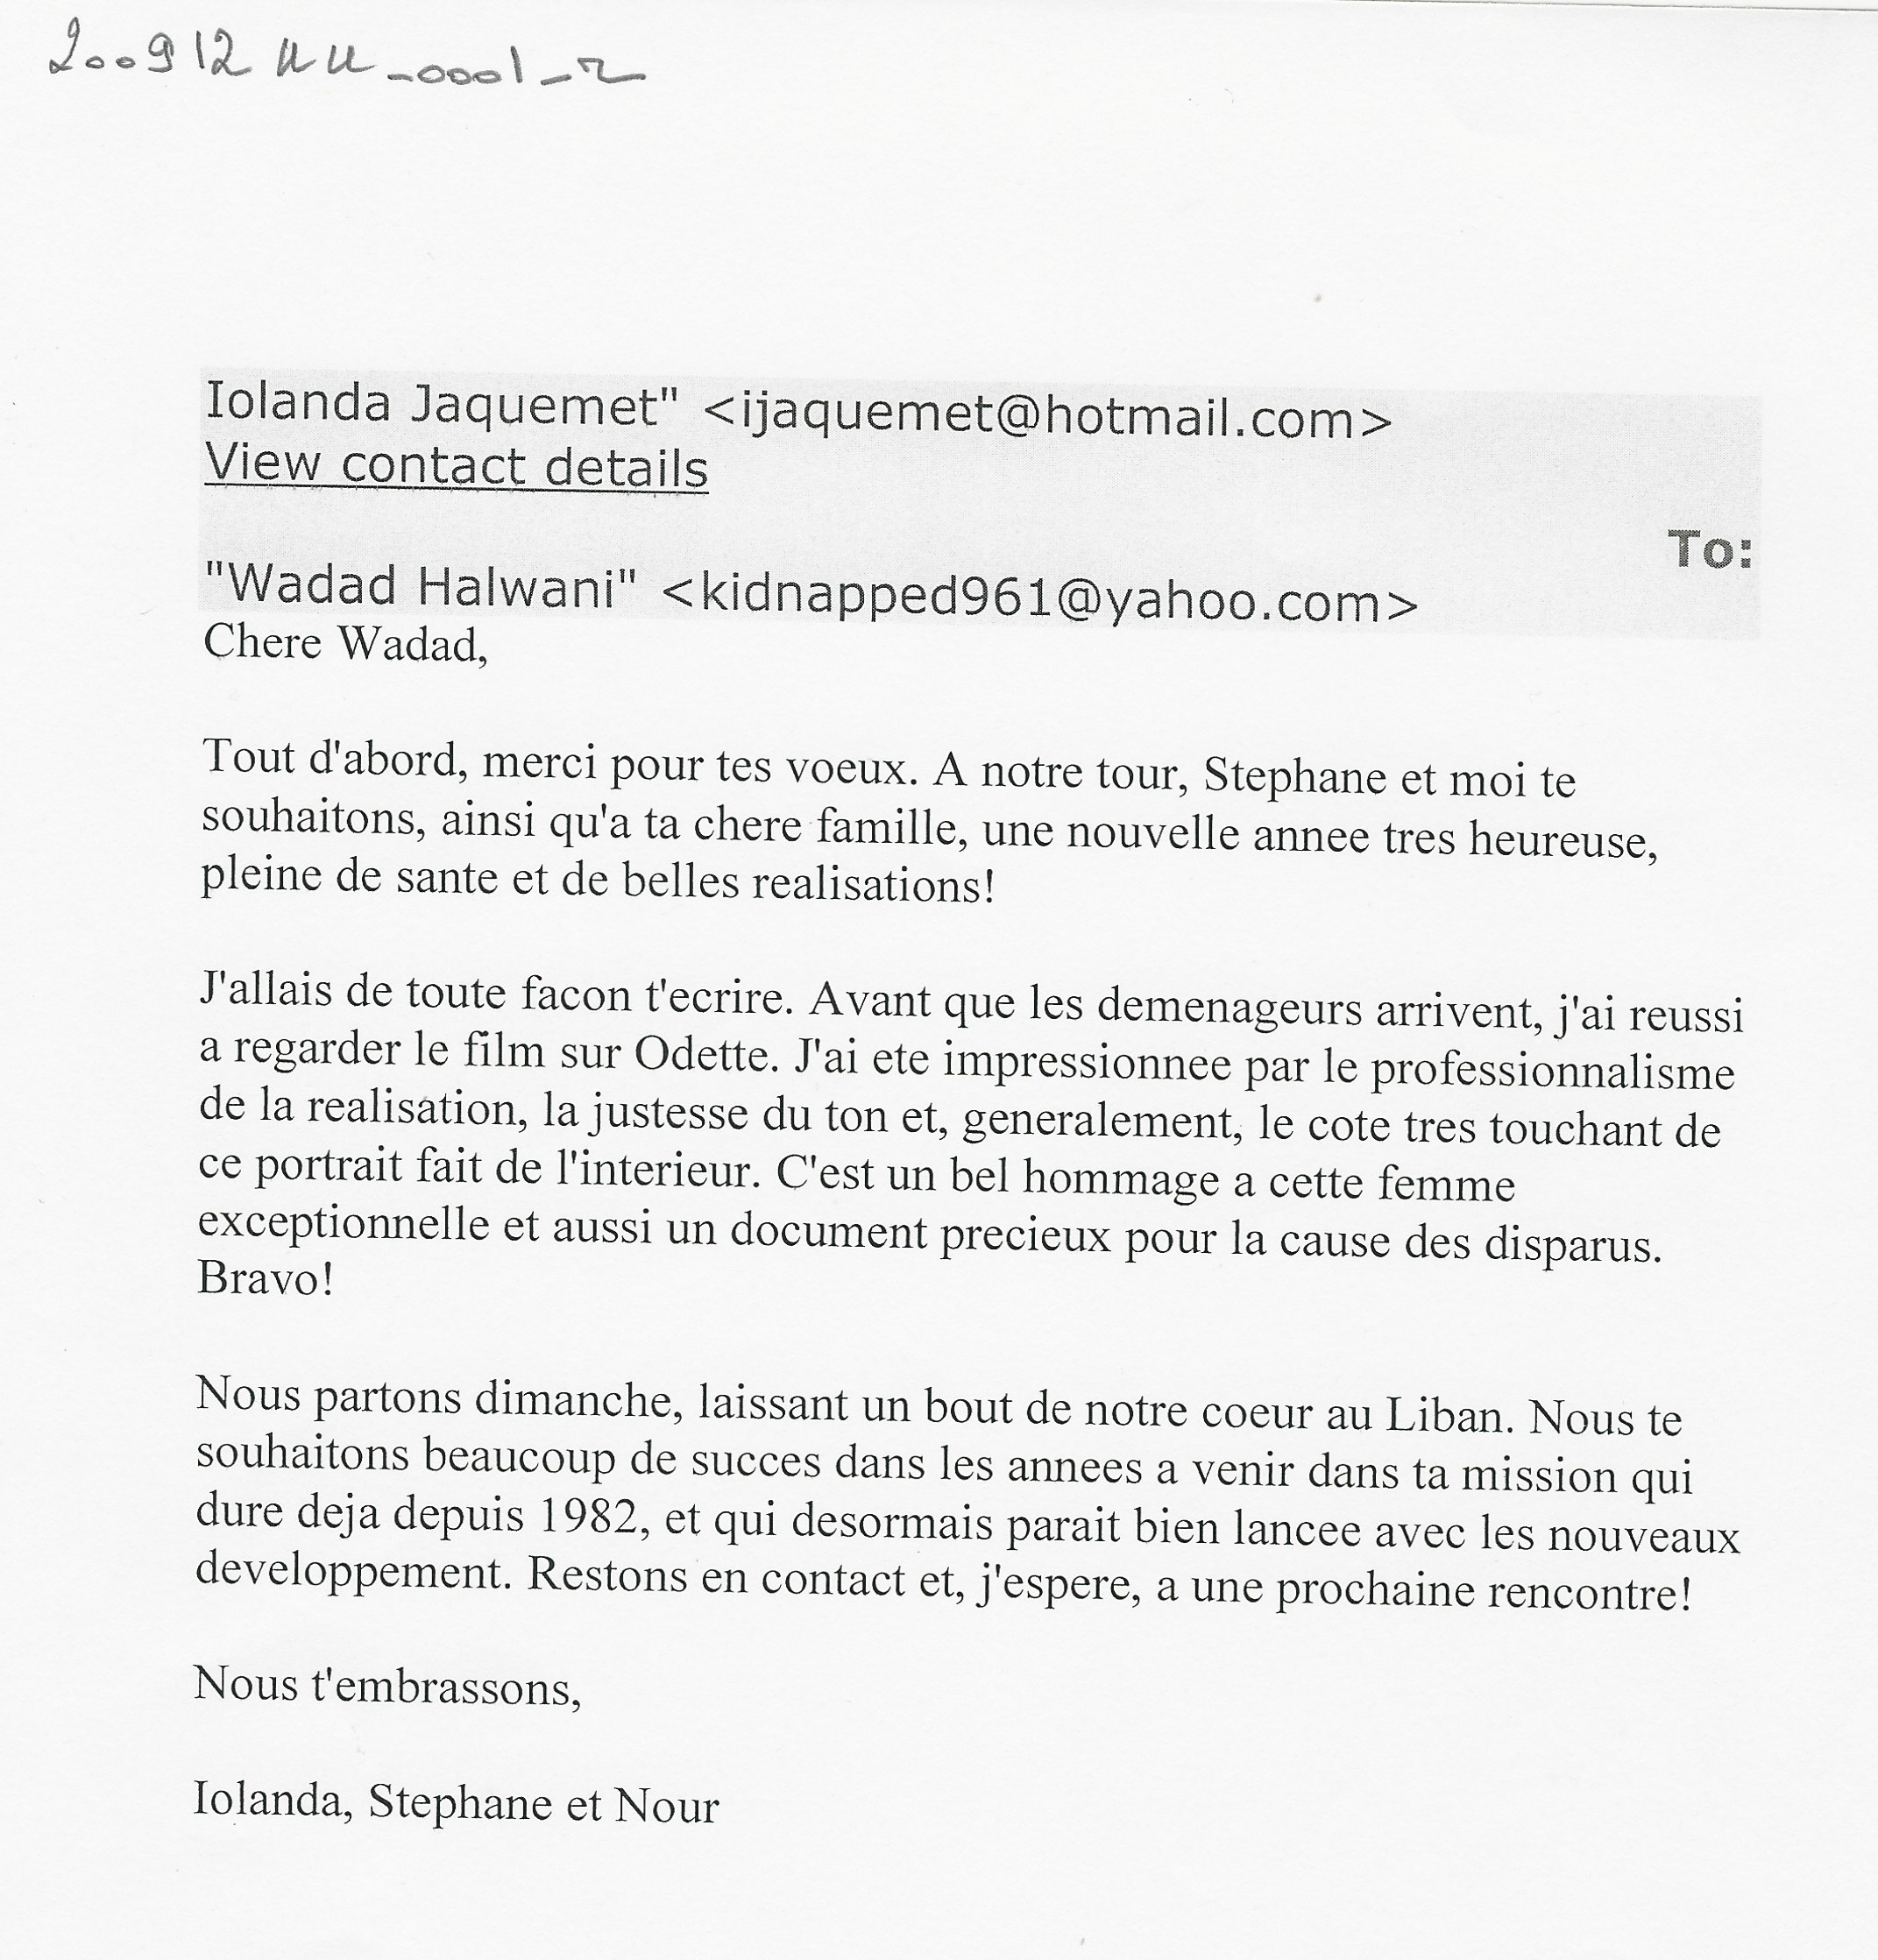 200912UU_0001_r
Iolanda Jaquemet" <ijaquemet@hotmail.com>
View contact details
To:
"Wadad Halwani" <kidnapped961@yahoo.com>
Chere Wadad,
Tout d'abord, merci pour tes voeux. A notre tour, Stephane et moi te
souhaitons, ainsi qu'a ta chere famille, une nouvelle annee tres heureuse,
pleine de sante et de belles realisations!
J'allais de toute facon t'ecrire. Avant que les demenageurs arrivent, j'ai reussi
a regarder le film sur Odette. J'ai ete impressionnee par le professionnalisme
de la realisation, la justesse du ton et, generalement, le cote tres touchant de
ce portrait fait de l'interieur. C'est un bel hommage a cette femme
exceptionnelle et aussi un document precieux pour la cause des disparus.
Bravo!
Nous partons dimanche, laissant un bout de notre coeur au Liban. Nous te
souhaitons beaucoup de succes dans les annees a venir dans ta mission qui
dure deja depuis 1982, et qui desormais parait bien lancee avec les nouveaux
developpement. Restons en contact et, j'espere, a une prochaine rencontre!
Nous t'embrassons,
Iolanda, Stephane et Nour